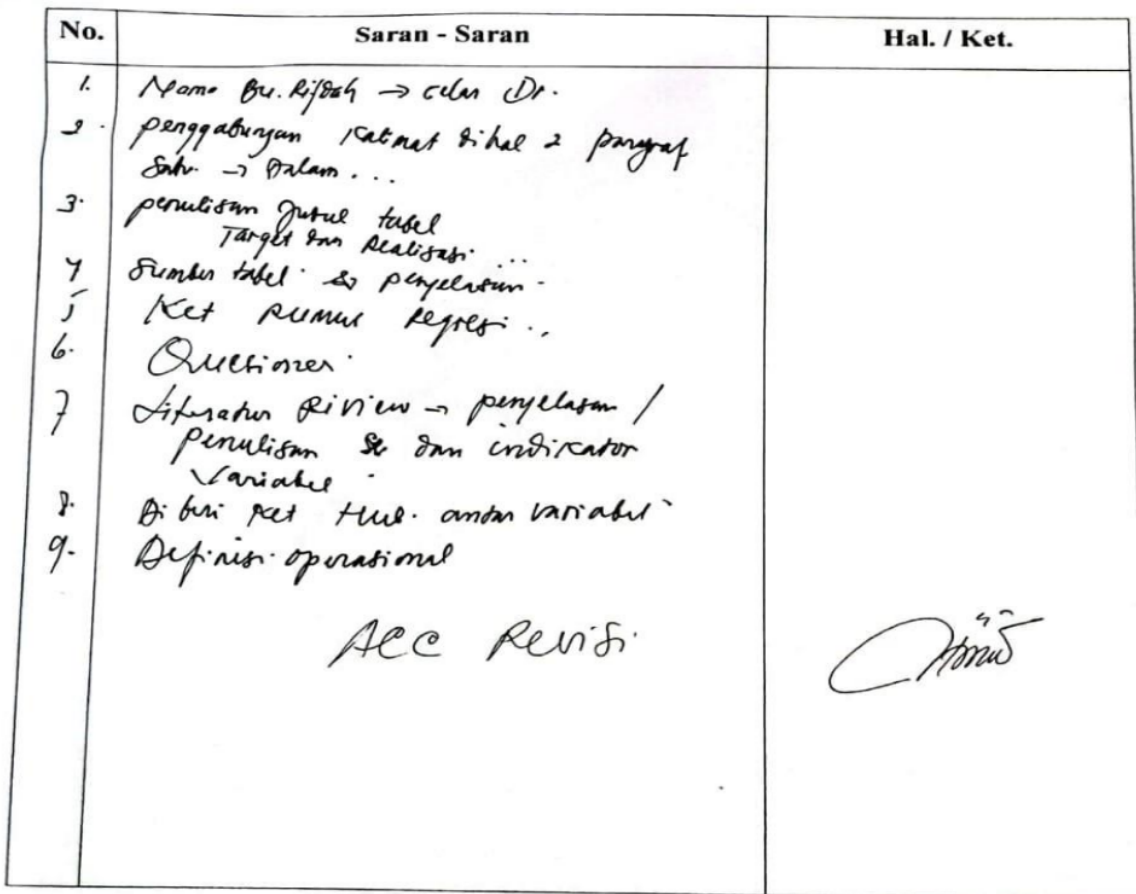 No. Saran - Saran Hal. / Ket.
1. Nama Bu. Rifdah → gelar Dr.
2. penggabungan kalimat dihal 2 paragraf
satu → Dalam...
3. penulisan judul tabel
Target dan Realisasi...
4 Sumber tabel penjelasan.
5 Ket rumus regresi..
6. Questioner
7 Literatur Riview → penjelasan /
penulisan dan indikator
Variabel
8. Di beri ket Hub. antar variabel
9. Definisi operasional
ACC Revisi